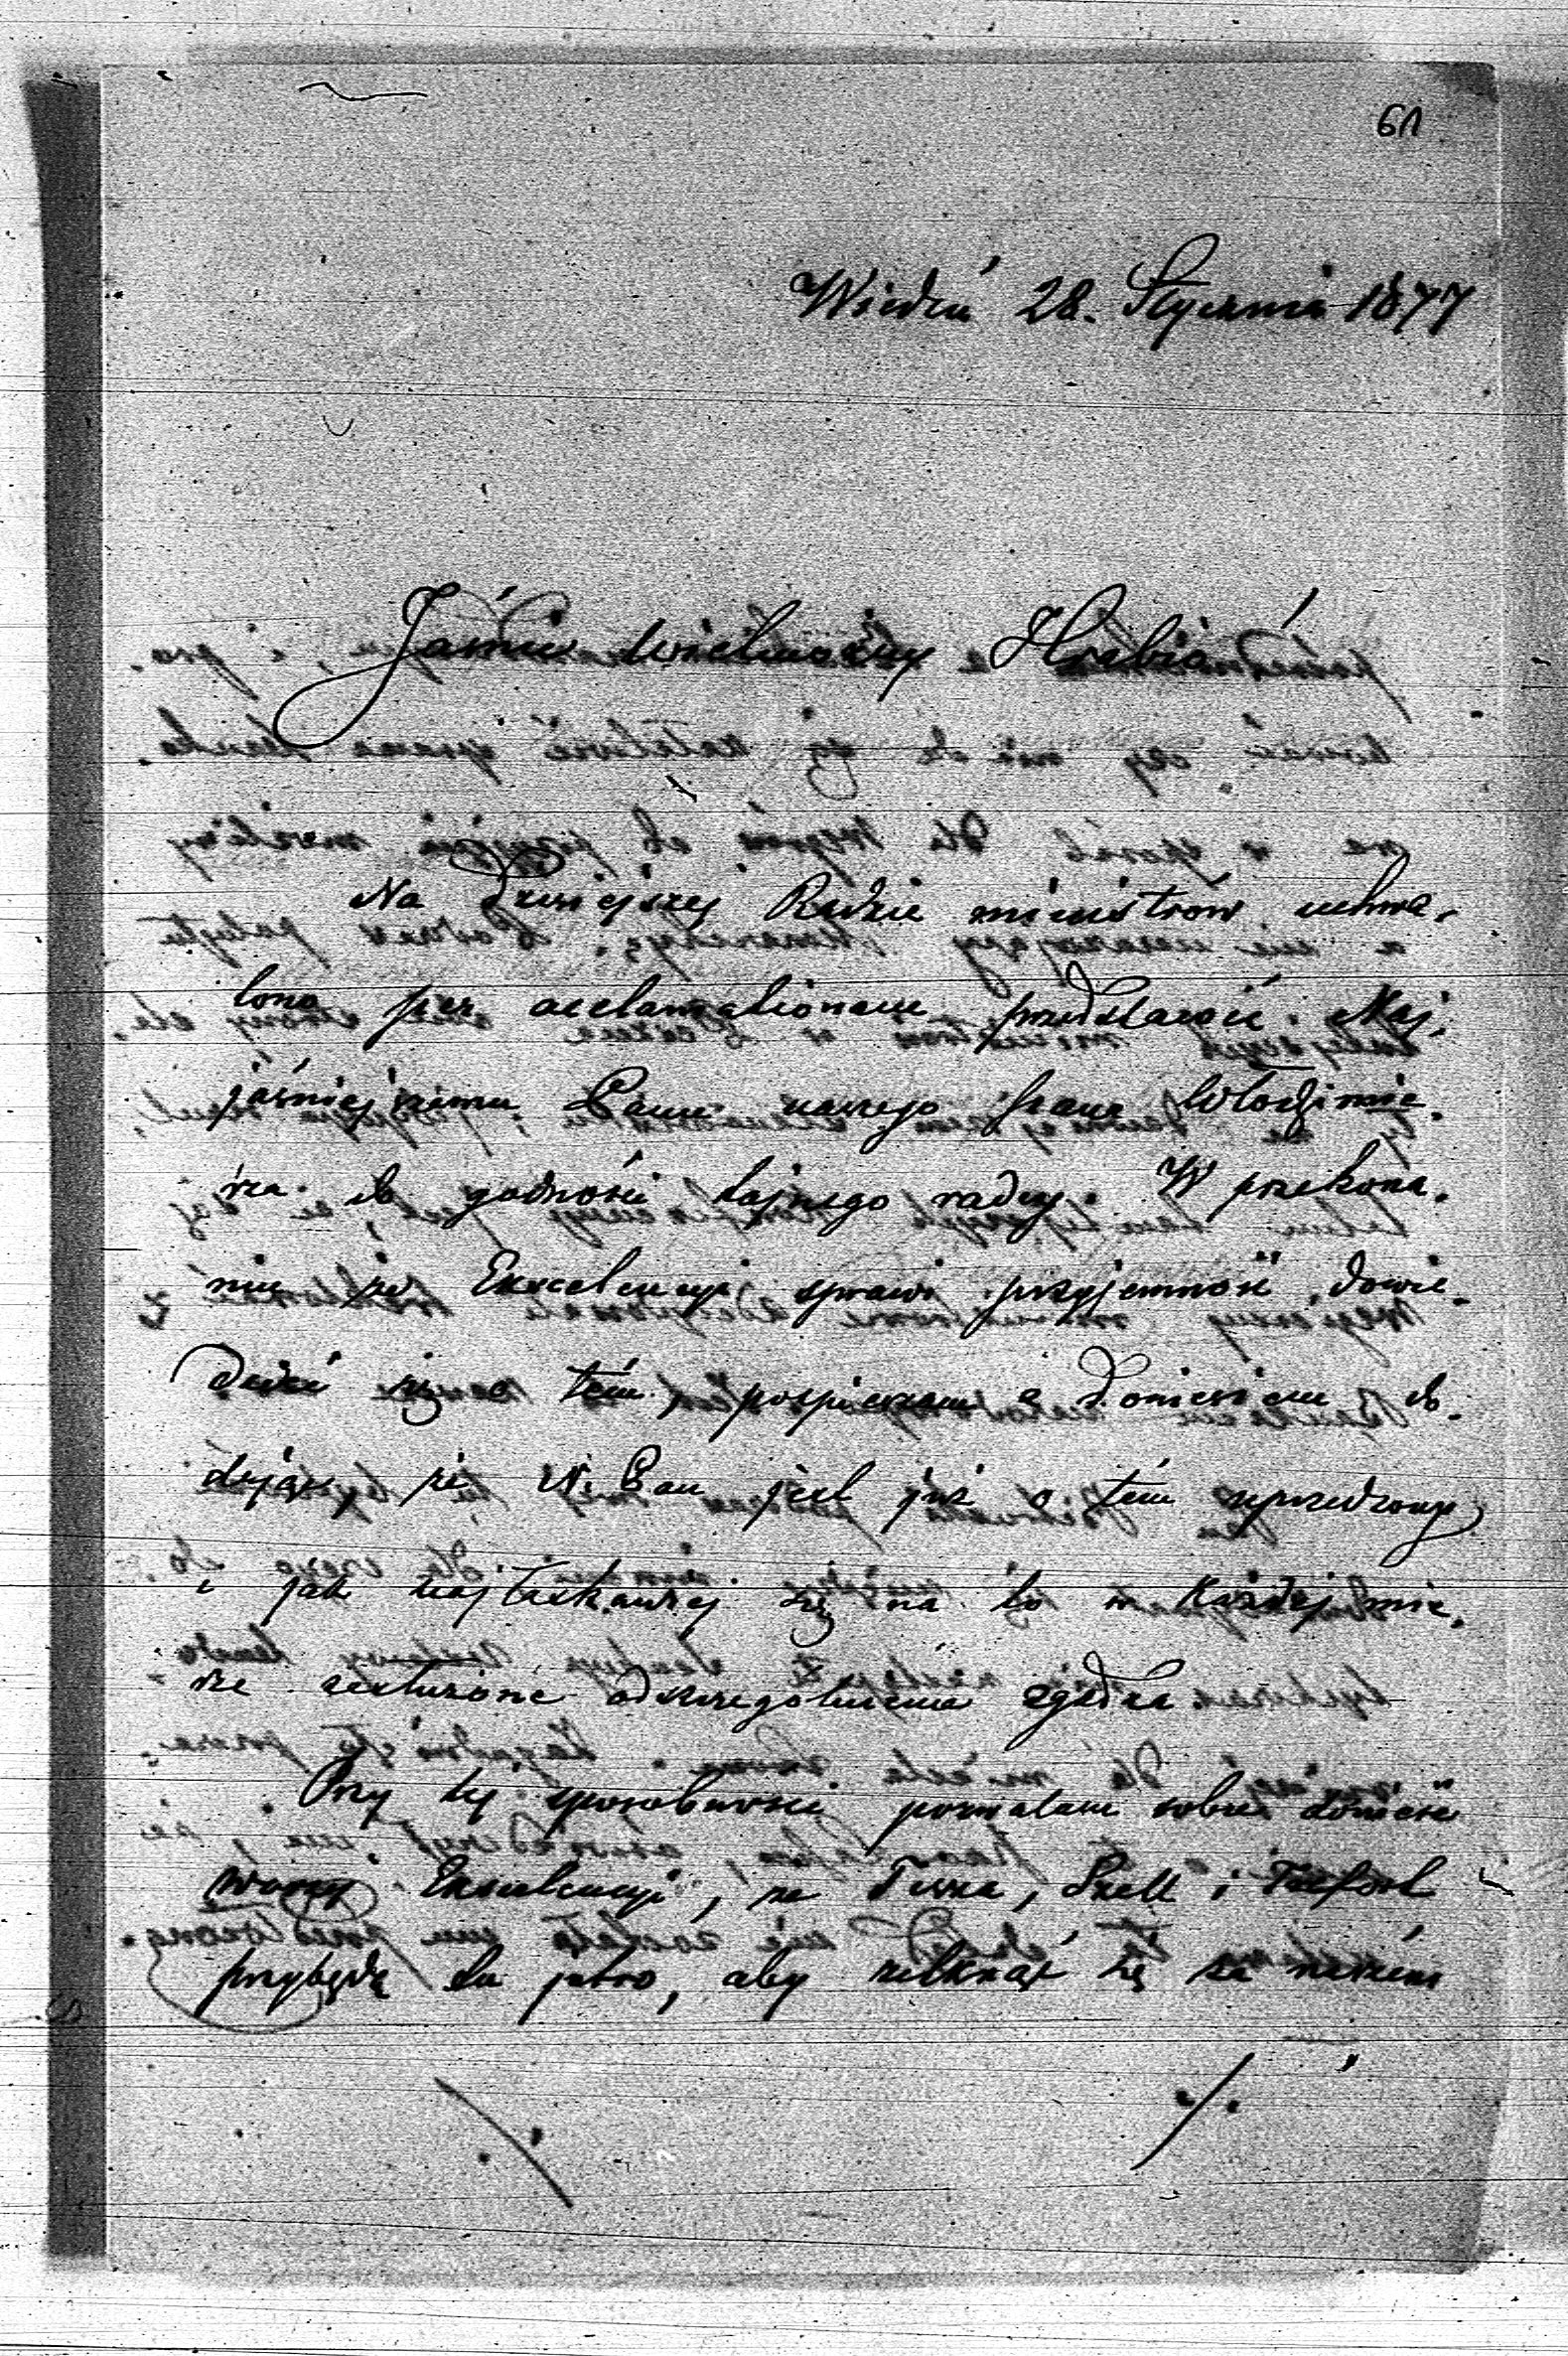 61
Wiedeń 28. Stycznia 1877
Jaśnie Wielmożny Hrabio
Na dzisiejszej Radzie ministrów uchwa-
lono per acclamationem przedstawić Naj-
jaśniejszemu Panu naszego hrabię Włodzimie-
rza do godności tajnego radcy. W przekona-
niu że Excelencyi sprawi przyjemność dowie-
dzieć się o tém, pospieszam z doniesieniem do-
dając, że N. Pan jest już o tém uprzedzony
i jak najłaskawiej się na to w każdej mie-
rze zasłużone odszczególnienie zgadza.
Przy tej sposobności pozwalam sobie donieść
Waszej Excelencyi, że Tisza, Szell i
przybędą tu jutro, aby zetknąć się za naszém
./.